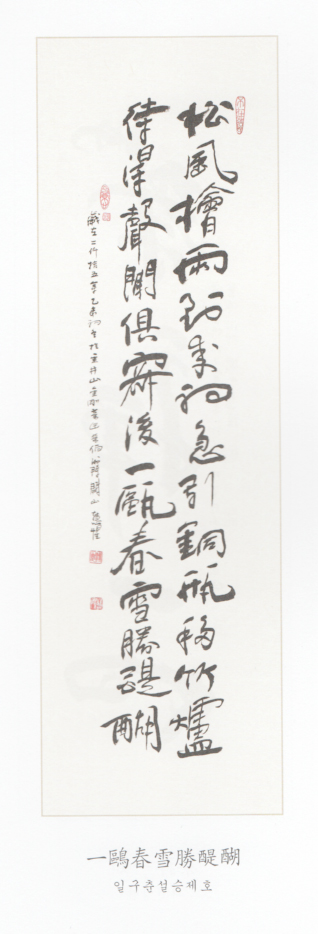 松風檜雨到來初急引銅瓶移竹爐
待得聲聞俱寂後一甌春雪勝醍醐
歲在二仟拾五年乙未初冬於
一鷗春雪勝醍醐
일구춘설승제호